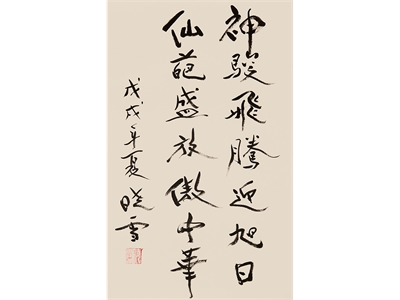 神駿飛騰迎旭日
仙葩盛放傲中華
戊戌年夏 晓雪